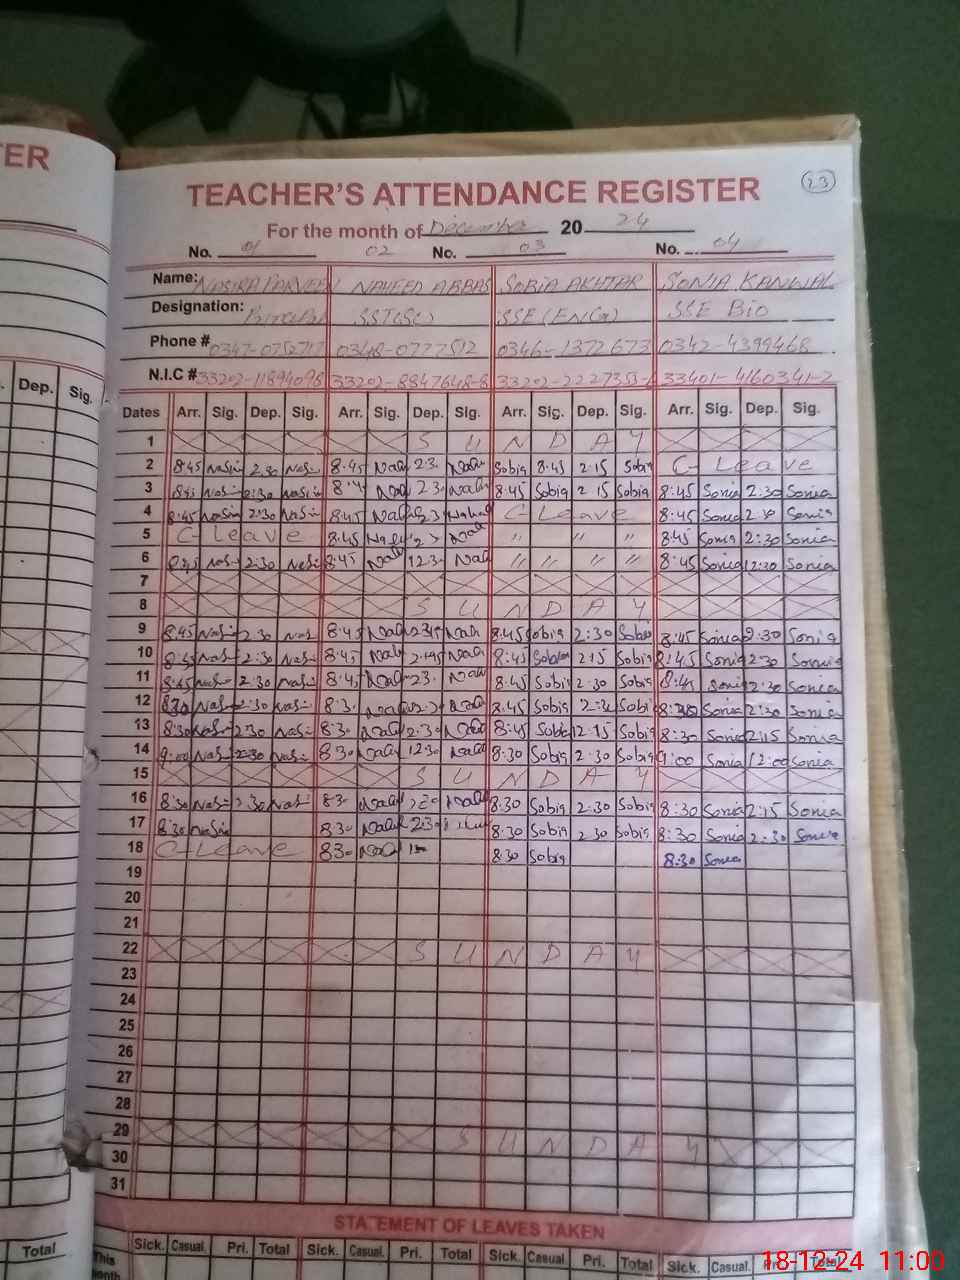 TER
TEACHER'S ATTENDANCE REGISTER 23
For the month of December 20 24
No. 01 02 No. 03 No. 04
Name: NASIRA PARVEEN NAVEED ABBAS SOBIA AKHTAR SONIA KANWAL
Designation: SST(Sc) SSE (ENG) SSE Bio
Phone # 0347-0752717 0348-0777512 0346-1372673 0342-4399468
N.I.C # 33202-11894098 33202-8847648-8 33202-2227353- 33401-4160341-2
Dep. Sig. Dates Arr. Sig. Dep. Sig. Arr. Sig. Dep. Sig. Arr. Sig. Dep. Sig. Arr. Sig. Dep. Sig.
1 SUNDAY
2 8:45 Nasi 2:30 Nasi 8:45 2:3 Sobia 8:45 2:15 Sobia C-Leave
3 8:45 Nasi 2:30 Nasi 8:4 2:3 8:45 Sobia 2:15 Sobia 8:45 Sonia 2:30 Sonia
4 8:45 Nasi 2:30 Nasi 8:45 C-Leave 8:45 Sonia 2:30 Sonia
5 C-Leave 8:45 " " " " 8:45 Sonia 2:30 Sonia
6 8:45 Nasi 2:30 Nasi 8:45 12:3 " " " " 8:45 Sonia 12:30 Sonia
7
8 SUNDAY
9 8:45 Nasi 2:30 Nasi 8:45 8:45 Sobia 2:30 Sobia 8:45 Sonia 2:30 Sonia
10 8:45 Nasi 2:30 Nasi 8:45 8:45 Sobia 2:15 Sobia 8:45 Sonia 2:30 Sonia
11 8:45 Nasi 2:30 Nasi 8:45 2:3 8:45 Sobia 2:30 Sobia 8:45 Sonia 2:30 Sonia
12 8:30 Nasi 2:30 Nasi 8:3 8:45 Sobia 2:30 Sobia 8:30 Sonia 2:30 Sonia
13 8:30 Nasi 2:30 Nasi 8:30 2:30 8:45 Sobia 2:15 Sobia 8:30 Sonia 2:15 Sonia
14 9:00 Nasi 2:30 Nasi 8:30 12:30 8:30 Sobia 2:30 Sobia 9:00 Sonia 12:00 Sonia
15 SUNDAY
16 8:30 Nasi 2:30 Nasi 8:3 8:30 Sobia 2:30 Sobia 8:30 Sonia 2:15 Sonia
17 8:30 Nasi 8:30 2:30 8:30 Sobia 2:30 Sobia 8:30 Sonia 2:30 Sonia
18 C-Leave 8:30 8:30 Sobia 8:30 Sonia
19
20
21
22 SUNDAY
23
24
25
26
27
28
29 SUNDAY
30
31
STATEMENT OF LEAVES TAKEN
Total This Month Sick. Casual. Pri. Total Sick. Casual. Pri. Total Sick. Casual Pri. Total Sick. Casual. Pri. Total
18-12-24 11:00